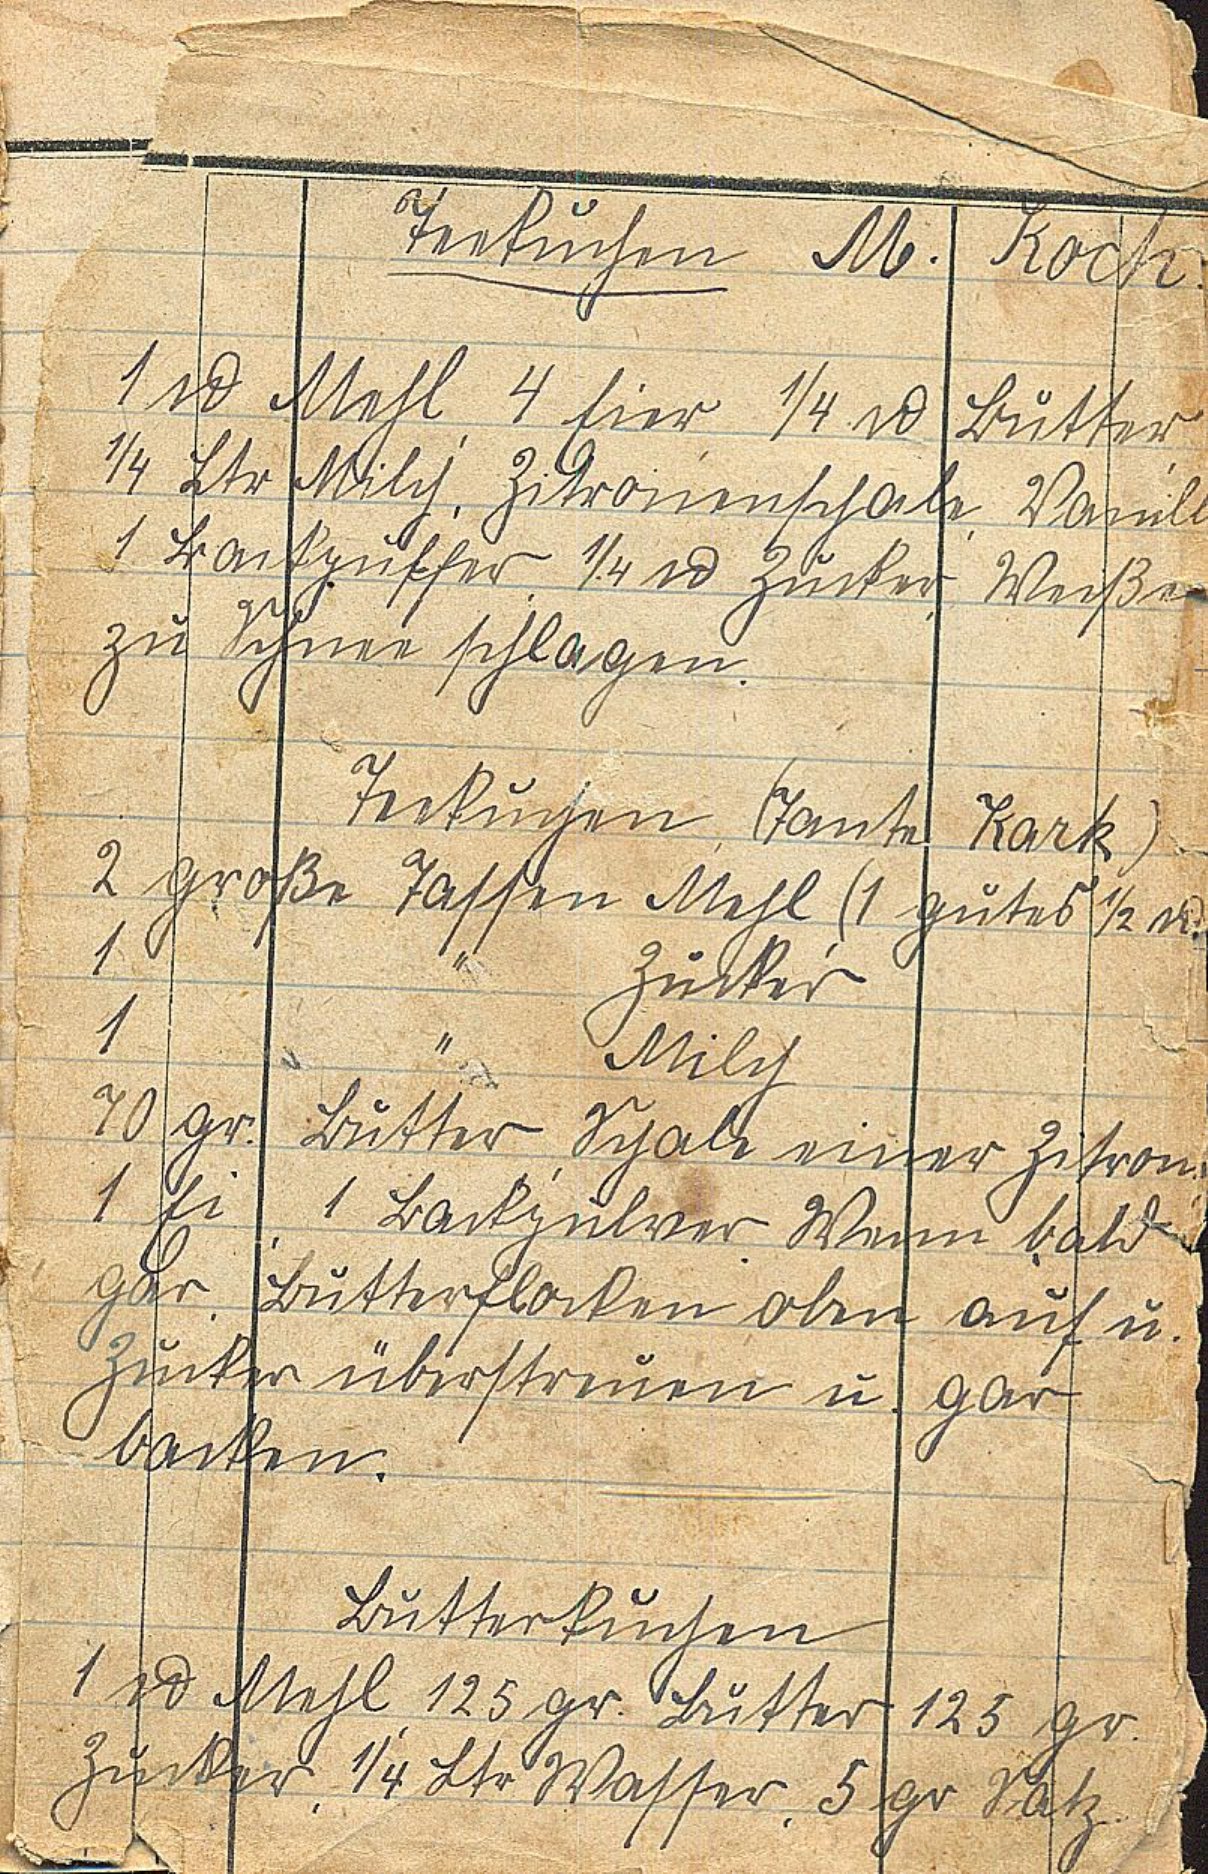 Teekuchen M. Koch.
1 ℔ Mehl, 4 Eier, 1/4 ℔ Butter
1/4 Ltr Milch, Zitronenschale, Vanill
1 Backpuffer, 1/4 ℔ Zucker, Weiße
zu Schnee schlagen.
Teekuchen, (Tante Kark)
2 große Tassen Mehl (1 gutes 1/2 ℔.
1 " Zucker
1 " Milch
70 gr. Butter, Schale einer Zitron.
1 Ei, 1 Backpulver. Wenn bald
gar, Butterflocken oben auf u.
Zucker überstreuen u. gar
backen.
Butterkuchen
1 ℔ Mehl, 125 gr. Butter 125 gr.
Zucker, 1/4 Ltr Wasser, 5 gr Salz.